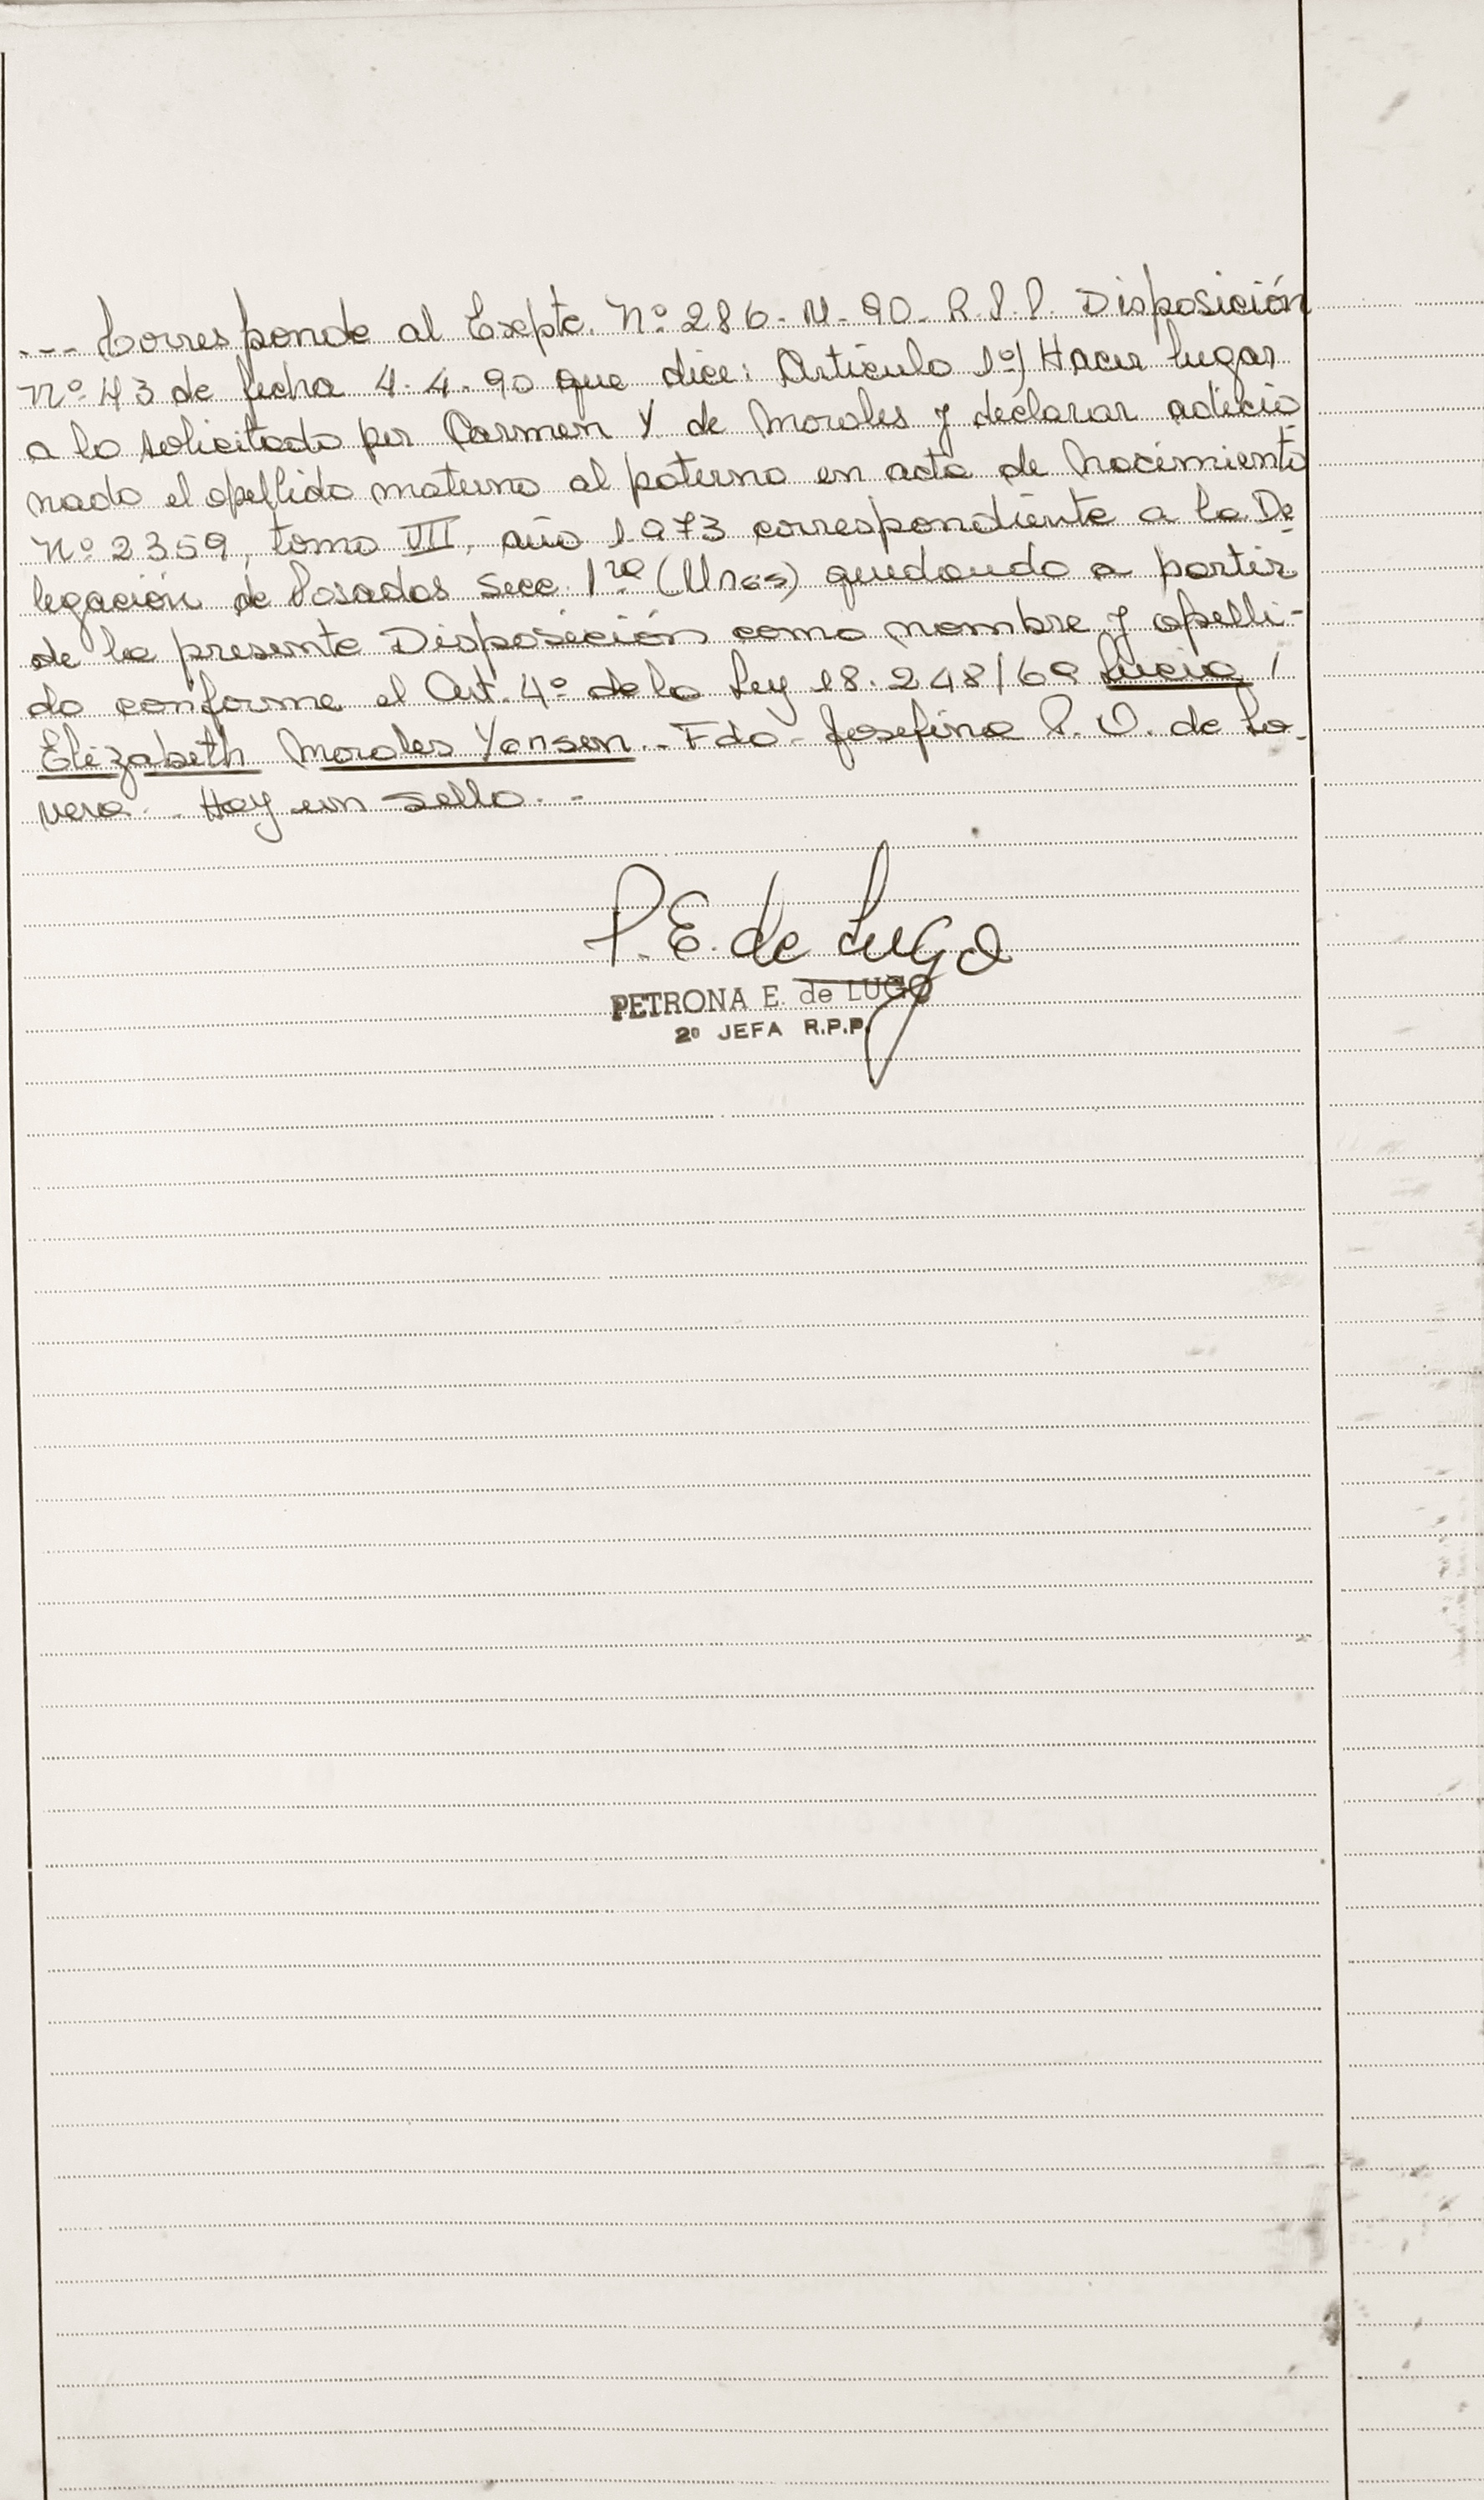 --- Corresponde al Expte. Nº 286-M-90- R.P.P. Disposición
Nº 43 de fecha 4.4.90 que dice: Artículo 1º) Hacer lugar
a lo solicitado por Carmen Y. de Morales y declarar adicio
nado el apellido materno al paterno en acta de Nacimiento
Nº 2359, tomo VII, año 1973 correspondiente a la De
legación de Posadas Secc. 1ra (Mnes) quedando a partir
de la presente Disposición como nombre y apelli-
do conforme el Art. 4º de la Ley 18.248/69 Lucia /
Elizabeth Morales Yansen.- Fdo- Josefina P. O. de Lo-
vera.- Hay un sello.-
P. E. de Lugo
PETRONA E. de LUGO
2º JEFA R.P.P.